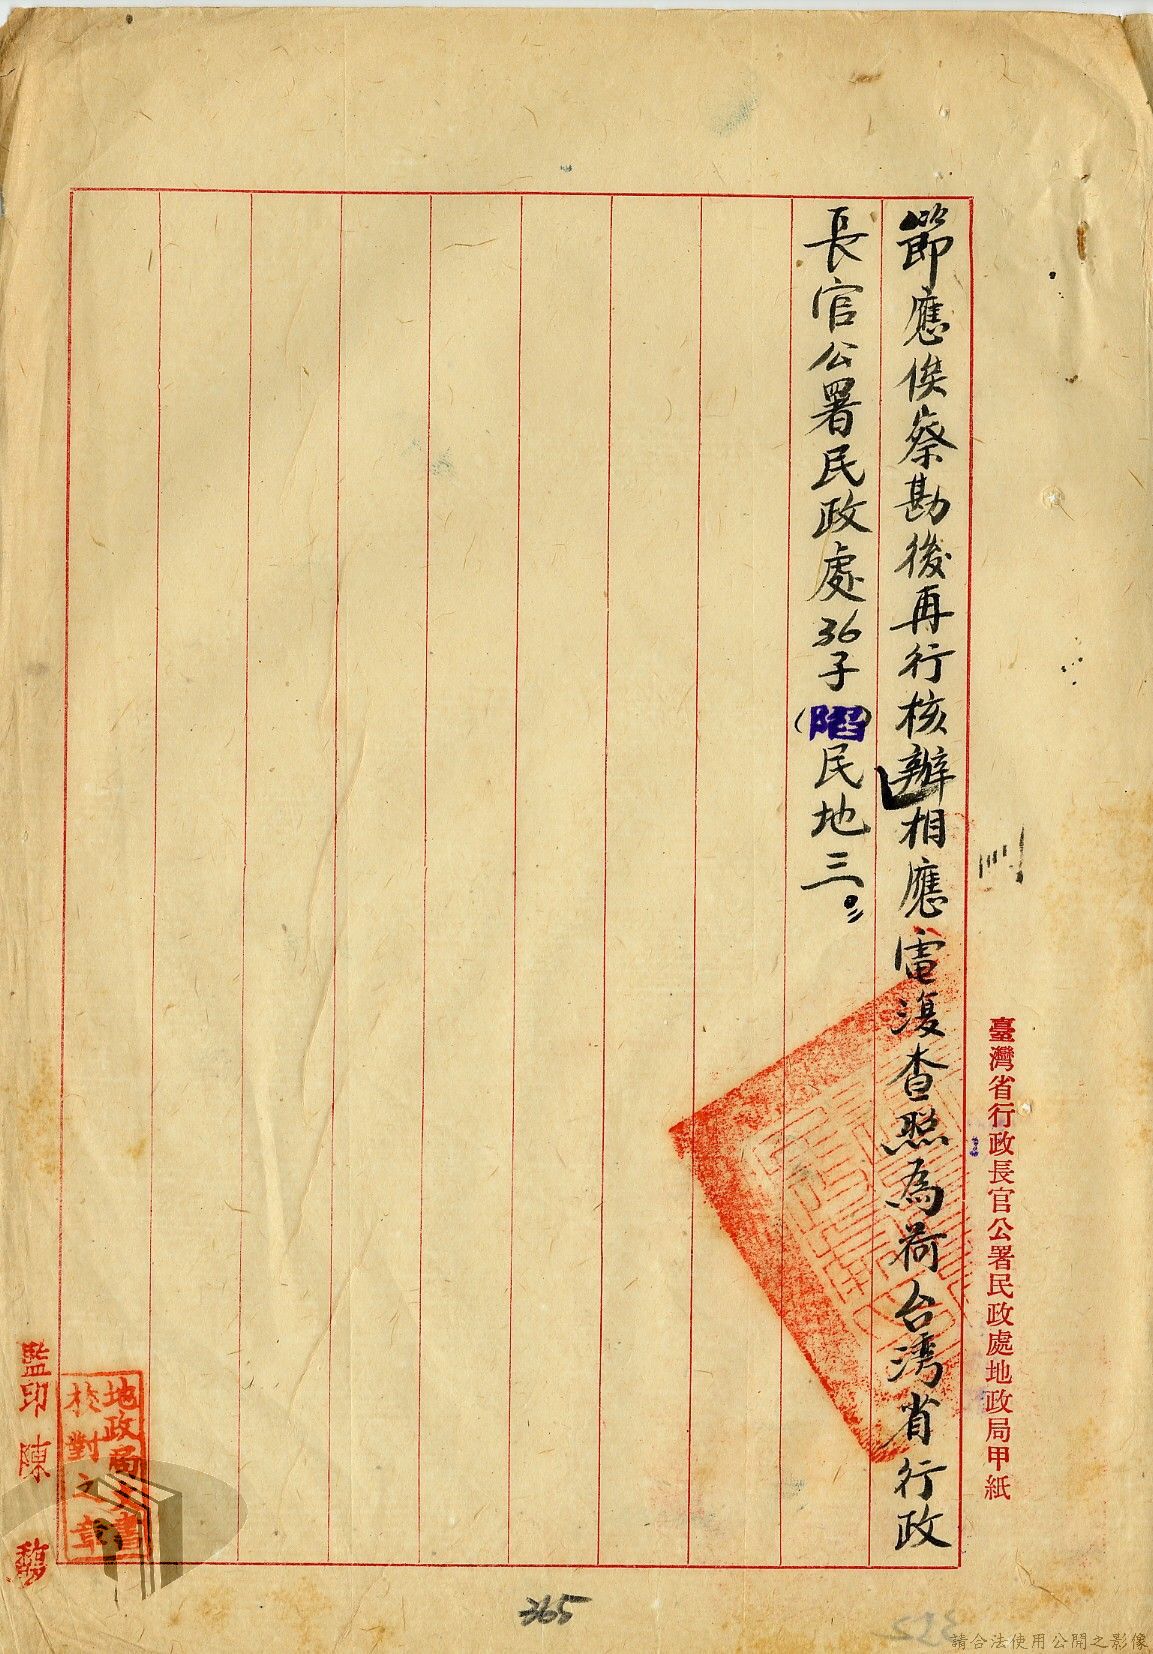 節應俟察勘後再行核辦相應電復查照為荷台湾省行政
長官公署民政處36子(陷)民地三
臺灣省行政長官公署民政處地政局甲紙
地政局文書
校對之章
監印 陳馥
365
請合法使用公開之影像